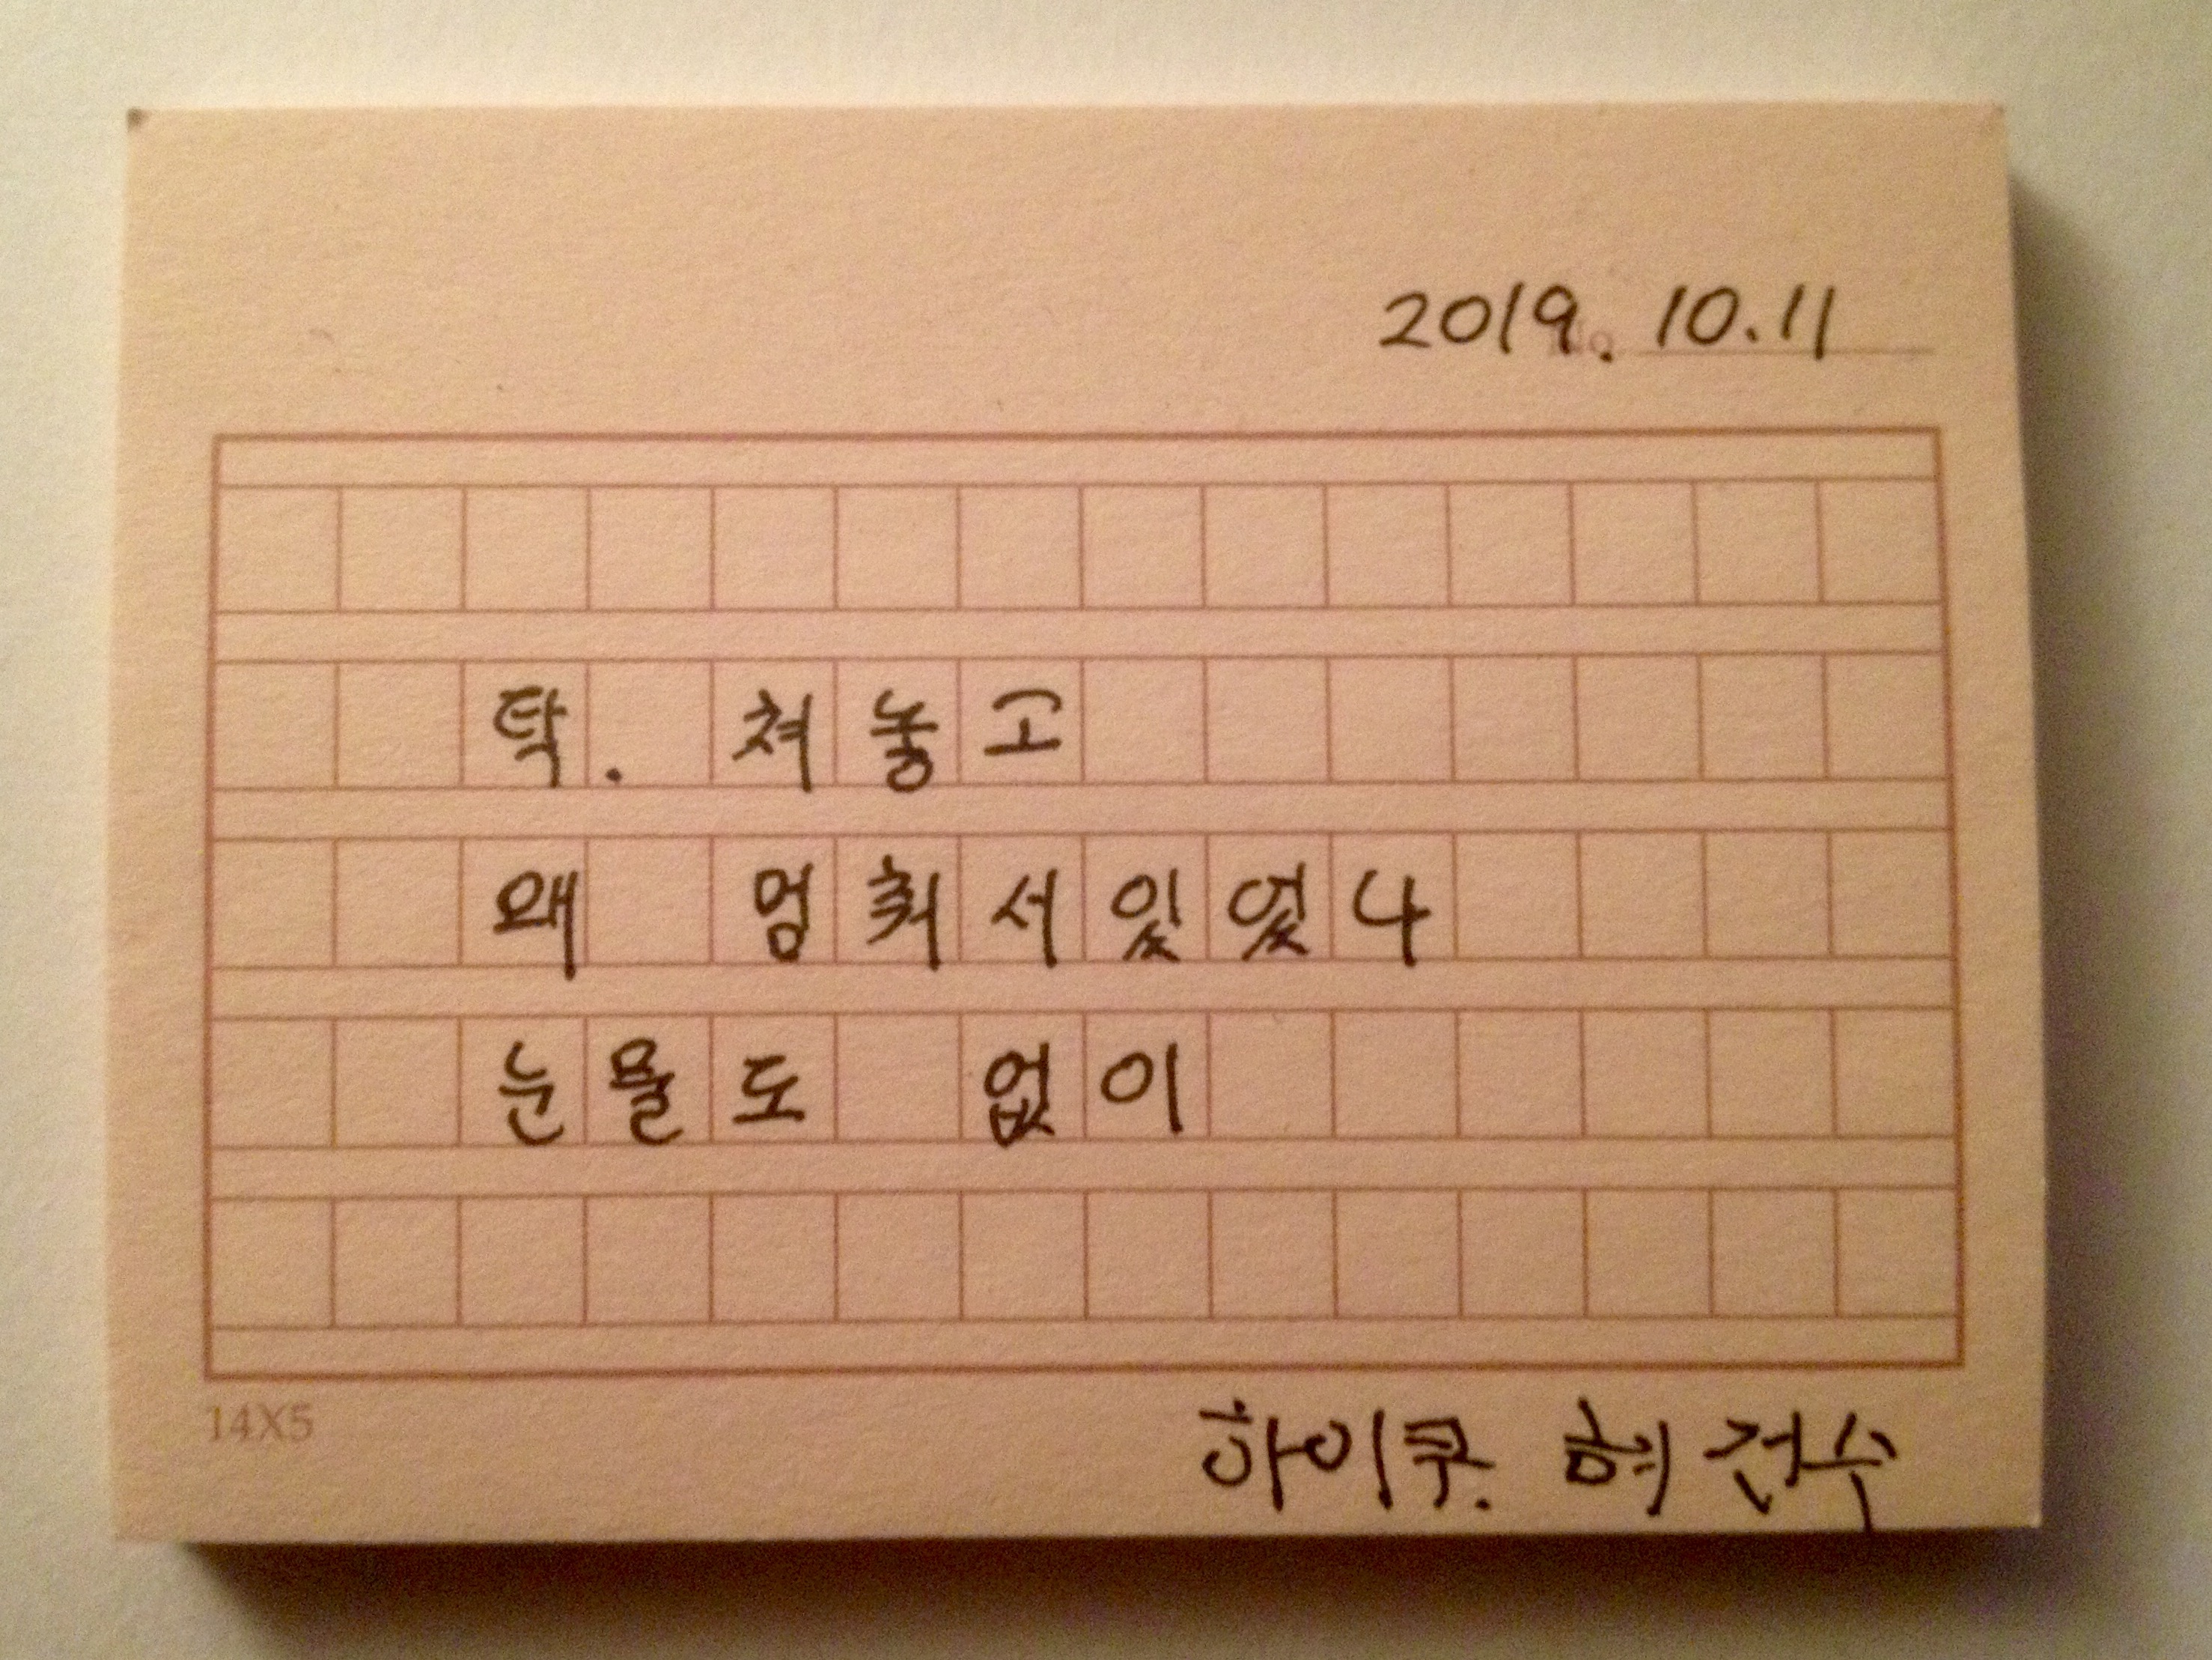 2019. 10.11
탁. 쳐놓고
왜 멈춰서있었나
눈물도 없이
14X5
하이쿠.